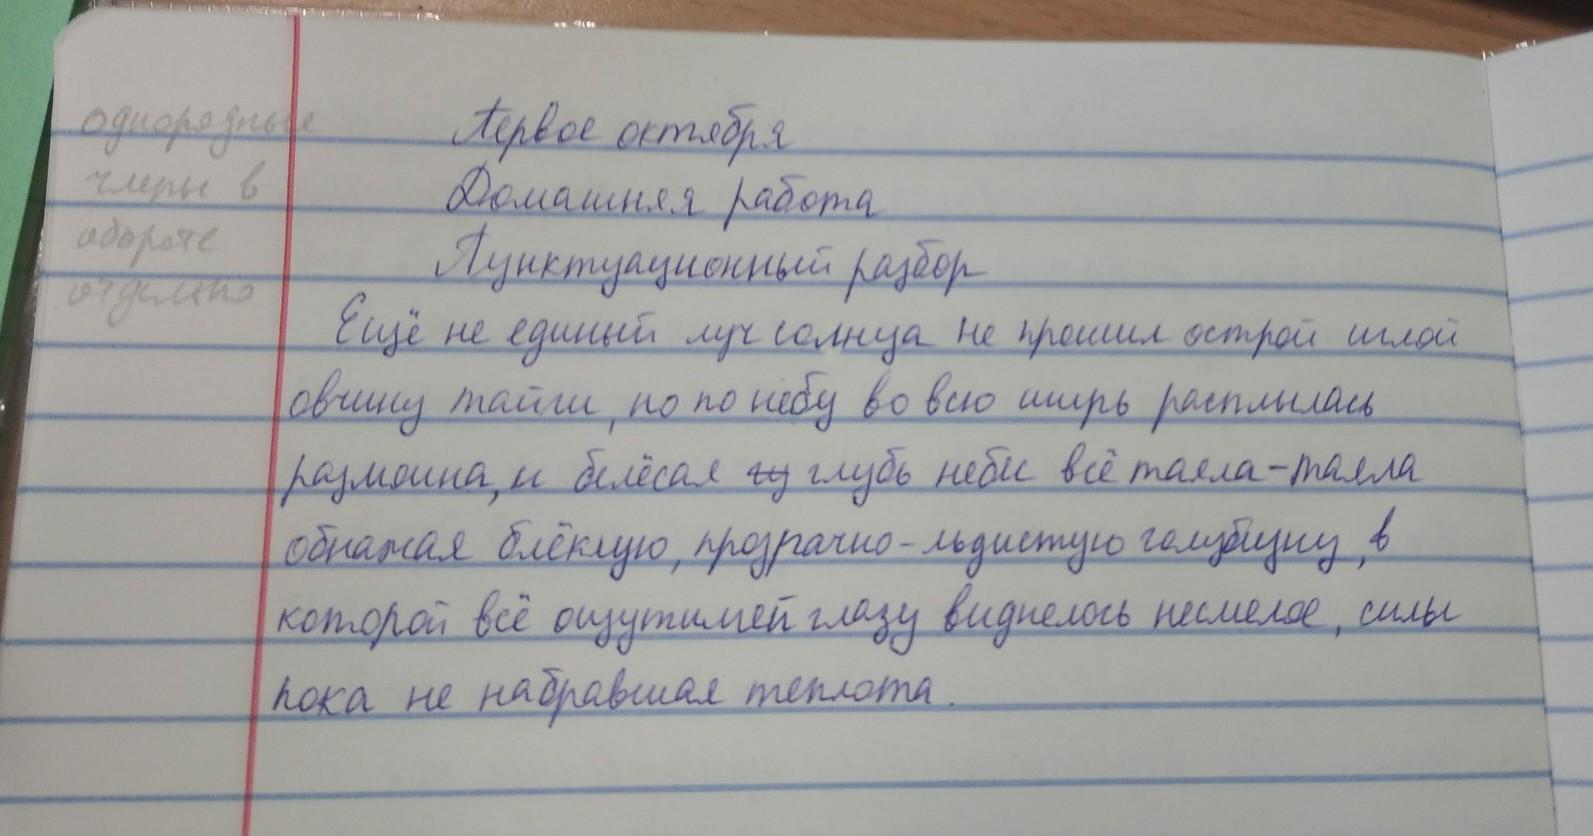 однородные
члены в
обороте
отдельно
Первое октября
Домашняя работа
Пунктуационный разбор
Ещё не единый луч солнца не прошил острой иглой
овчину тайги, но по небу во всю ширь расплылась
размоина, и белёсая глубь неби всё таяла-таяла
обнажая блёклую, прозрачно-льдистую голубизну, в
которой всё ощутимей глазу виднелось несмелое, силы
пока не набравшая теплота.